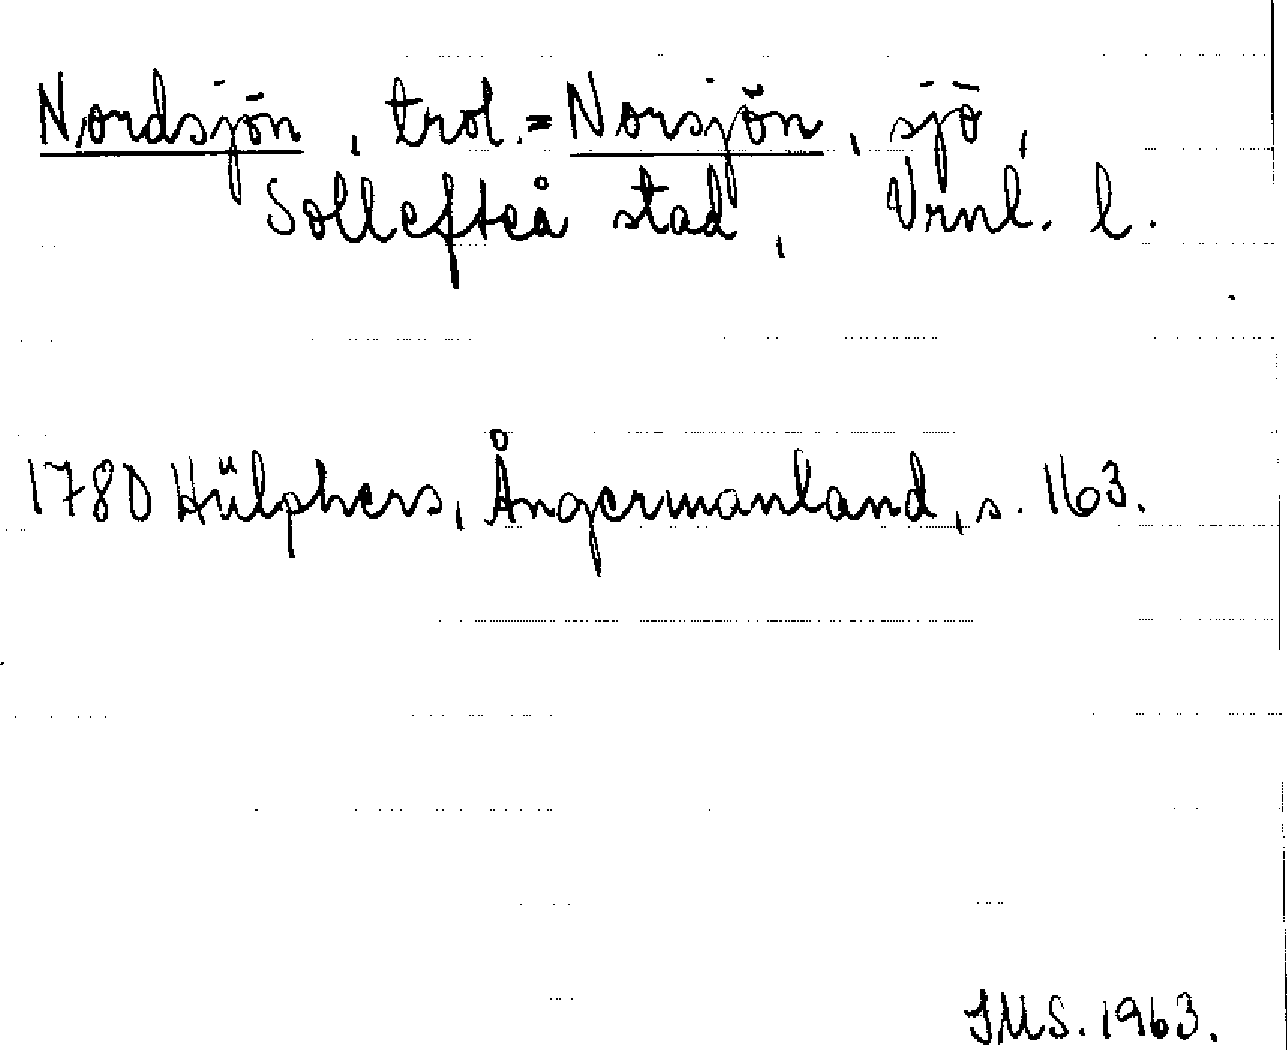 Nordsjön, trol. = Norsjön, sjö,
Sollefteå stad, Vrnl. l.
1780 Hülphers, Ångermanland, s. 163.
JMS. 1963.